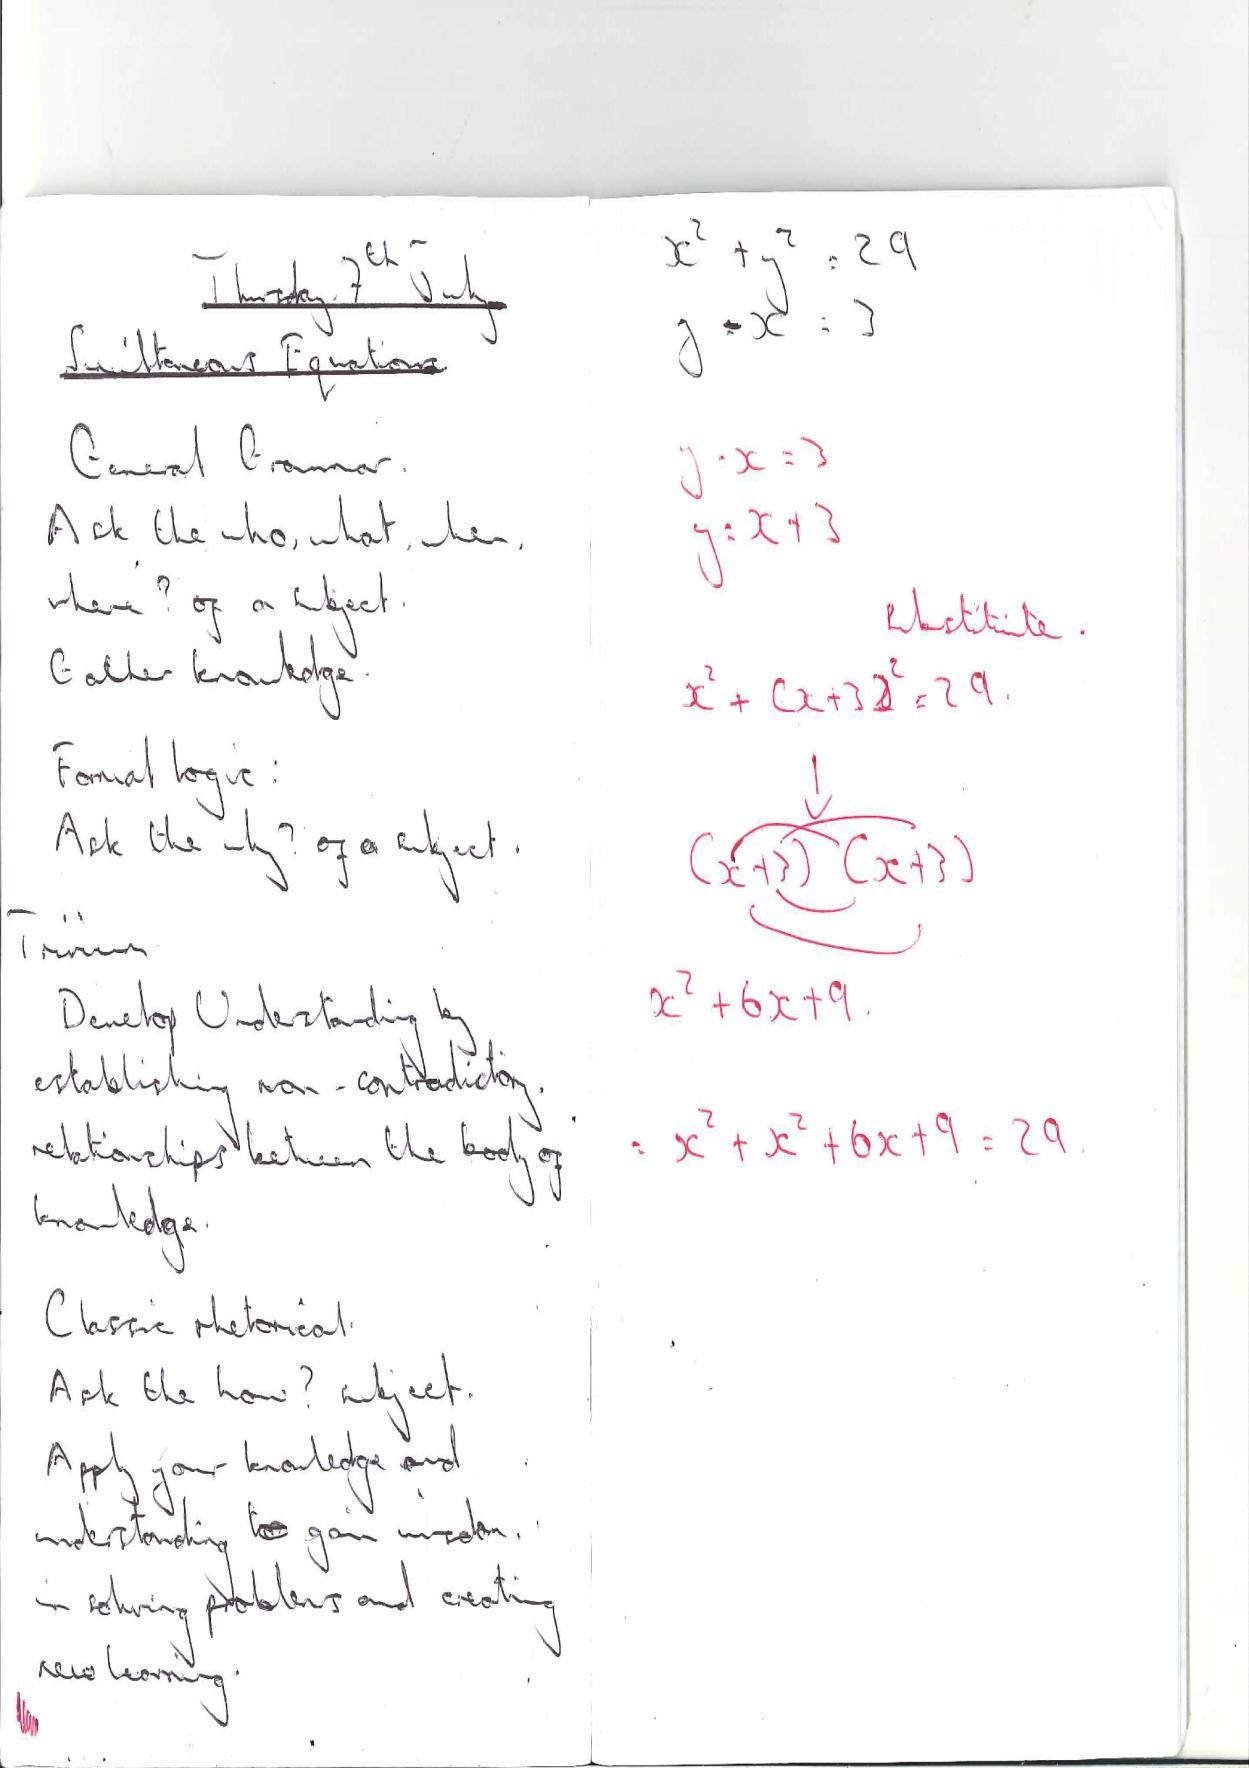 Thursday 7th July
Simultaneous Equations
General Grammar.
Ask the who, what, when,
where? of a subject.
Gather knowledge.
Formal logic:
Ask the why? of a subject.
Trivium
Develop Understanding by
establishing non-contradictory
relationships between the body of
knowledge.
Classic rhetorical.
Ask the how? subject.
Apply your knowledge and
understanding to gain wisdom.
in solving problems and creating
new learning.
x² + y² = 29
y - x = 3
y - x = 3
y = x + 3
substitute.
x² + (x+3)² = 29.
(x+3) (x+3)
x² + 6x + 9.
= x² + x² + 6x + 9 = 29.